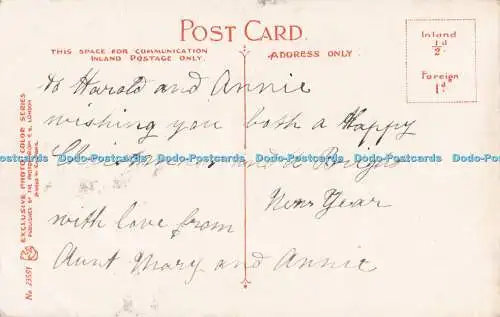 POST CARD.
THIS SPACE FOR COMMUNICATION
INLAND POSTAGE ONLY.
ADDRESS ONLY.
Inland
½d
Foreign
1d.
to Harold and Annie
wishing you both a Happy
Christmas and a Bright
New Year
with love from
Aunt Mary and Annie
Dodo-Postcards Dodo-Postcards Dodo-Postcards Dodo-Postcards Dodo-Postcards Dodo-Postcards
EXCLUSIVE PHOTO-COLOR SERIES
No 23591